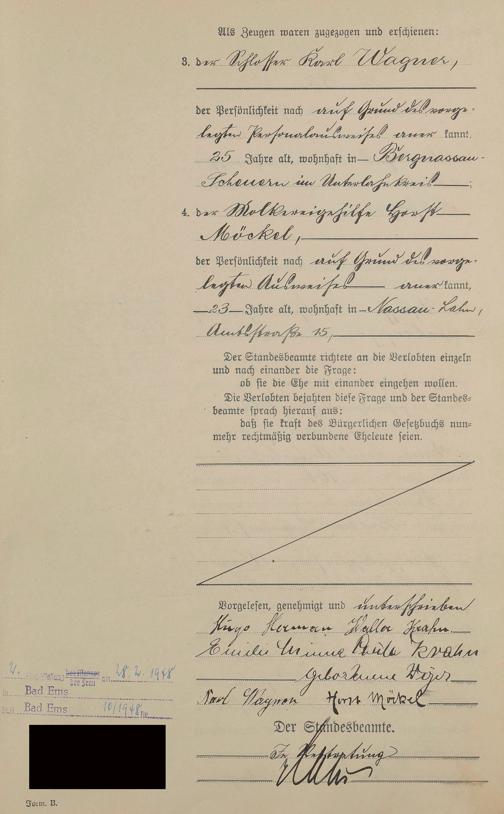 Als Zeugen waren zugezogen und erschienen:
3. der Schlosser Karl Wagner,
der Persönlichkeit nach auf Grund des vorge-
legten Personalausweises aner kannt,
25 Jahre alt, wohnhaft in Bergnassau-
Scheuern im Unterlahnkreis ;
4. der Molkereigehilfe Horst
Möckel,
der Persönlichkeit nach auf Grund des vorge-
legten Ausweises aner kannt,
23 Jahre alt, wohnhaft in Nassau-Lahn,
Amtsstraße 15,
Der Standesbeamte richtete an die Verlobten einzeln
und nach einander die Frage:
ob sie die Ehe mit einander eingehen wollen.
Die Verlobten bejahten diese Frage und der Standes-
beamte sprach hierauf aus:
daß sie kraft des Bürgerlichen Gesetzbuchs nun-
mehr rechtmäßig verbundene Eheleute seien.
Vorgelesen, genehmigt und unterschrieben
Hugo Herman Krahn
Emilie Minna Krahn
geborene
Karl Wagner Horst Möckel
Der Standesbeamte.
In Vertretung
2. des Mannes der Frau am 28.2.1948
in Bad Ems
Bad Ems 10/1948
Form. B.